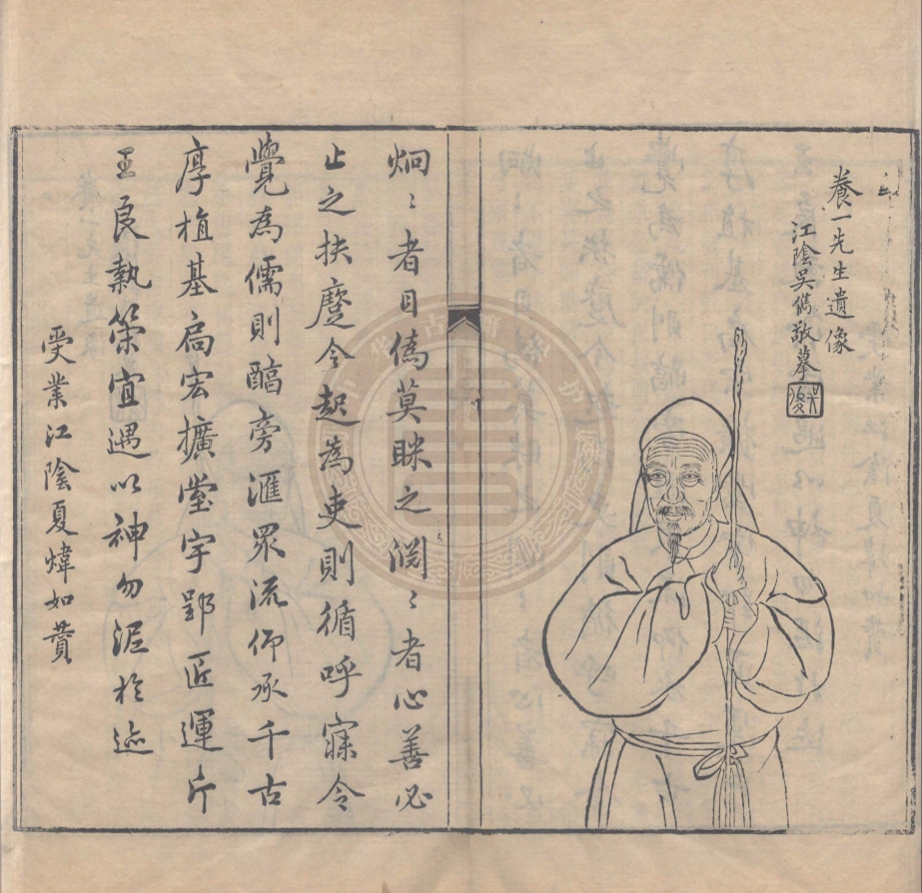 養一先生遺像
江陰吳儁敬摹
吳儁
炯〻者目僞莫眯之淵〻者心善必
止之扶躄令起為吏則循呼寐令
覺為儒則醕旁滙眾流仰承千古
厚植基扃宏擴堂宇郢匠運斤
王良執策宜遇以神勿泥於迹
受業江陰夏煒如贊